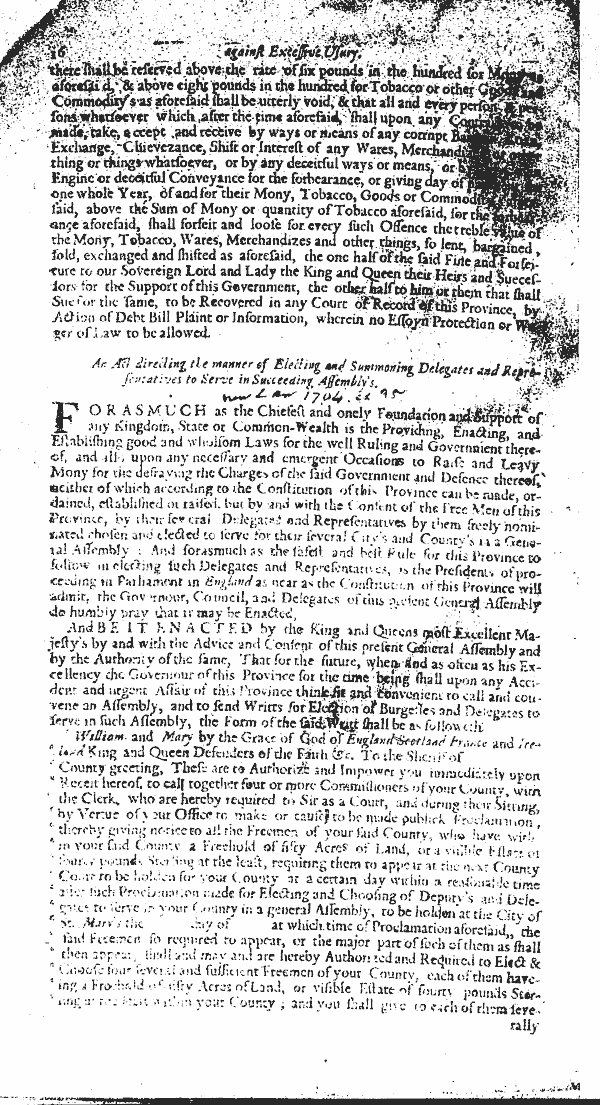 16 against Excessive Usury.
there shall be reserved above the rate of six pounds in the hundred for
aforesaid, & above eight pounds in the hundred for Tobacco or other
Commodity's as aforesaid shall be utterly void, & that all and every
sons whatsoever which after the time aforesaid, shall upon any
made, take, accept and receive by ways or means of any corrupt
Exchange, Chievezance, Shift or Interest of any Wares,
thing or things whatsoever, or by any deceitful ways or means, or
Engine or deceitful Conveyance for the forbearance, or giving day of
one whole Year, of and for their Mony, Tobacco, Goods or
said, above the Sum of Mony or quantity of Tobacco aforesaid, for the
ance aforesaid, shall forfeit and loose for every such Offence the treble value of
the Mony, Tobacco, Wares, Merchandizes and other things, so lent, bargained,
sold, exchanged and shifted as aforesaid, the one half of the said Fine and Forfei-
ture to our Sovereign Lord and Lady the King and Queen their Heirs and Succes-
sors for the Support of this Government, the other half to him or them that shall
Sue for the same, to be Recovered in any Court of Record of this Province, by
Action of Debt Bill Plaint or Information, wherein no Essoyn Protection or
ger of Law to be allowed.
An Act directing the manner of Electing and Summoning Delegates and Repre-
sentatives to Serve in Succeeding Assembly's.
1704
FORASMUCH as the Chiefest and onely Foundation and Support of
any Kingdom, State or Common-Wealth is the Providing, Enacting, and
Establishing good and wholsom Laws for the well Ruling and Government there-
of, and also upon any necessary and emergent Occasions to Raise and Leavy
Mony for the defraying the Charges of the said Government and Defence thereof,
neither of which according to the Constitution of this Province can be made, or-
dained, established or raised, but by and with the Consent of the Free Men of this
Province, by their several Delegates and Representatives by them freely nomi-
nated chosen and elected to serve for their several City's and County's in a Gene-
ral Assembly : And forasmuch as the safest and best Rule for this Province to
follow in electing such Delegates and Representatives, is the Presidents of pro-
ceeding in Parliament in England as near as the Constitution of this Province will
admit, the Governour, Council, and Delegates of this present General Assembly
do humbly pray that it may be Enacted,
And BE IT ENACTED by the King and Queens most Excellent Ma-
jesty's by and with the Advice and Consent of this present General Assembly and
by the Authority of the same, That for the future, when and as often as his Ex-
cellency the Governour of this Province for the time being shall upon any Acci-
dent and urgent Affair of this Province think fit and convenient to call and con-
vene an Assembly, and to send Writts for Election of Burgesses and Delegates to
serve in such Assembly, the Form of the said Writt shall be as followeth
William and Mary by the Grace of God of England Scotland France and Ire-
land King and Queen Defenders of the Faith &c. To the Sheriff of
County greeting, These are to Authorize and Impower you immediately upon
Receit hereof, to call together four or more Commissioners of your County, with
the Clerk, who are hereby required to Sit as a Court, and during their Sitting,
by Vertue of your Office to make or cause to be made publick Proclamation,
thereby giving notice to all the Freemen of your said County, who have with-
in your said County a Freehold of fifty Acres of Land, or a visible Estate of
fourty pounds Sterling at the least, requiring them to appear at the next County
Court to be holden for your County at a certain day within a reasonable time
after such Proclamation made for Electing and Choosing of Deputy's and Dele-
gates to serve in your County in a general Assembly, to be holden at the City of
St. Mary's the day of at which time of Proclamation aforesaid, the
said Freemen so required to appear, or the major part of such of them as shall
then appear, shall and may and are hereby Authorized and Required to Elect &
Choose four several and sufficient Freemen of your County, each of them have-
ing a Freehold of fifty Acres of Land, or visible Estate of fourty pounds Ster-
ling at the least within your County ; and you shall give to each of them seve-
rally